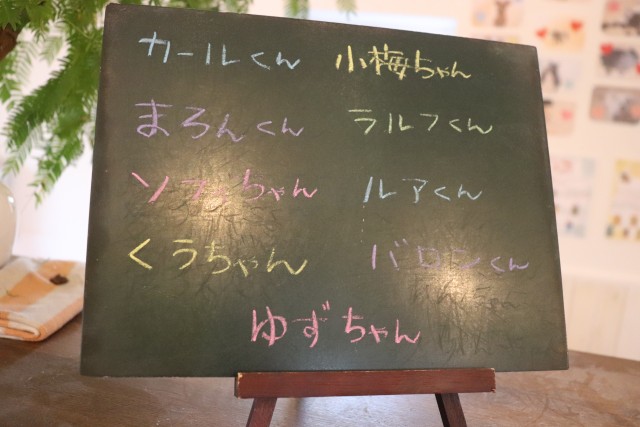 カールくん 小梅ちゃん
まろんくん ラルフくん
ソフィちゃん ルアくん
くうちゃん バロンくん
ゆずちゃん